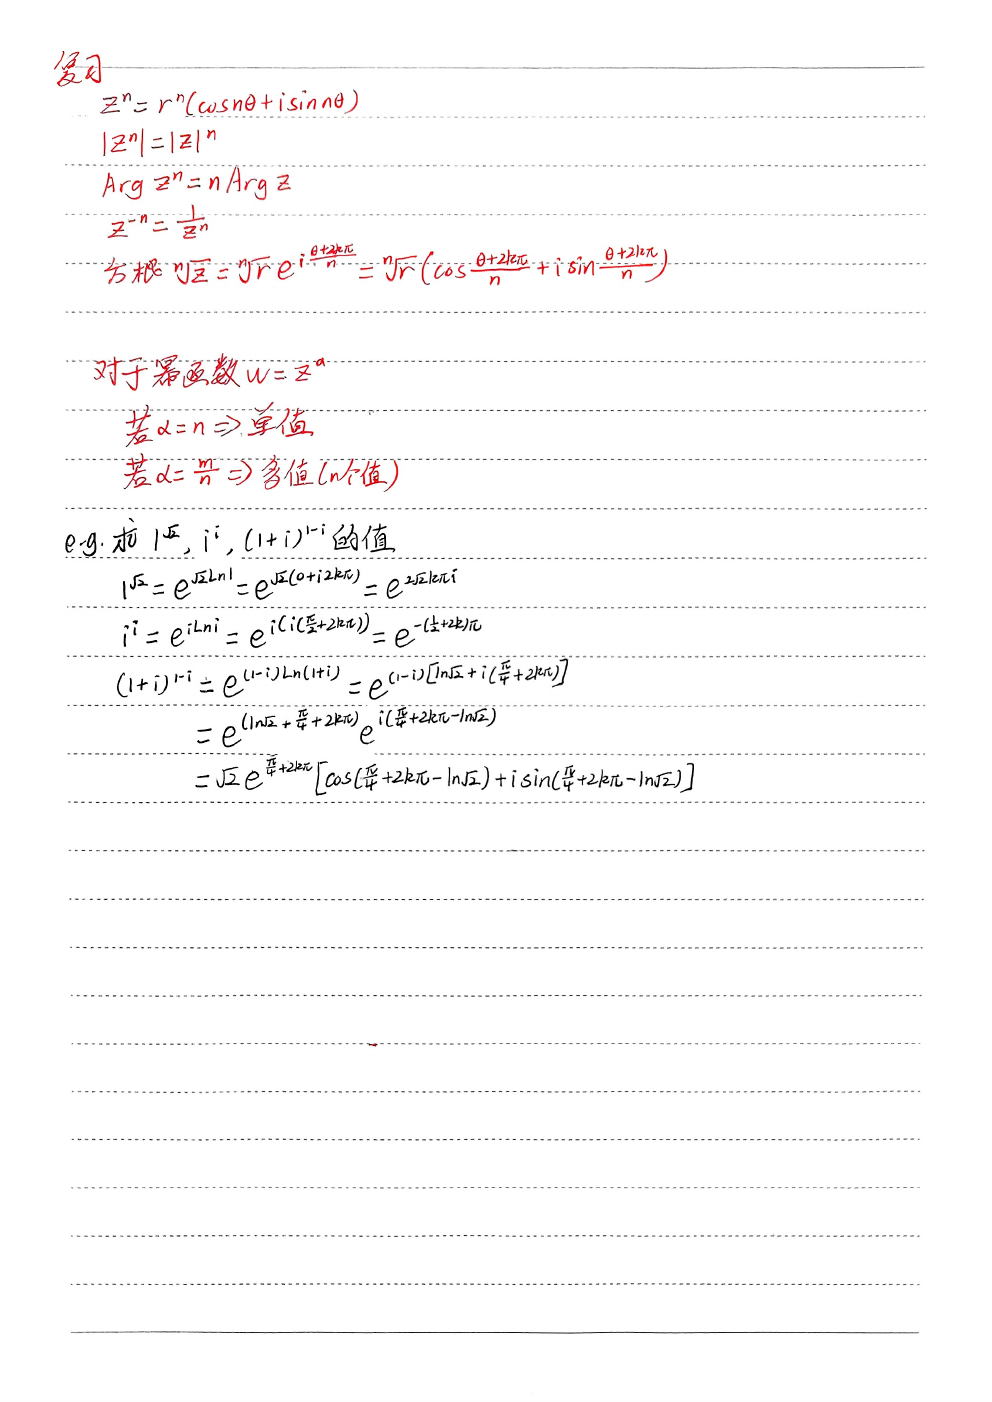 复习
zⁿ = rⁿ(cosnθ + i sin nθ)
|zⁿ| = |z|ⁿ
Arg zⁿ = n Arg z
z⁻ⁿ = 1/zⁿ
方根 ⁿ√z = ⁿ√r e^{i (θ+2kπ)/n} = ⁿ√r (cos (θ+2kπ)/n + i sin (θ+2kπ)/n)
对于幂函数 w = z^α
若 α = n ⇒ 单值
若 α = m/n ⇒ 多值 (n个值)
e.g. 求 1^{√2}, i^i, (1+i)^{1-i} 的值
1^{√2} = e^{√2 Ln1} = e^{√2(0+i2kπ)} = e^{2√2kπi}
i^i = e^{iLni} = e^{i(i(π/2+2kπ))} = e^{-(1/2+2k)π}
(1+i)^{1-i} = e^{(1-i)Ln(1+i)} = e^{(1-i)[ln√2 + i(π/4+2kπ)]}
= e^{(ln√2 + π/4 + 2kπ)} e^{i(π/4+2kπ-ln√2)}
= √2 e^{π/4+2kπ} [cos(π/4+2kπ-ln√2) + i sin(π/4+2kπ-ln√2)]